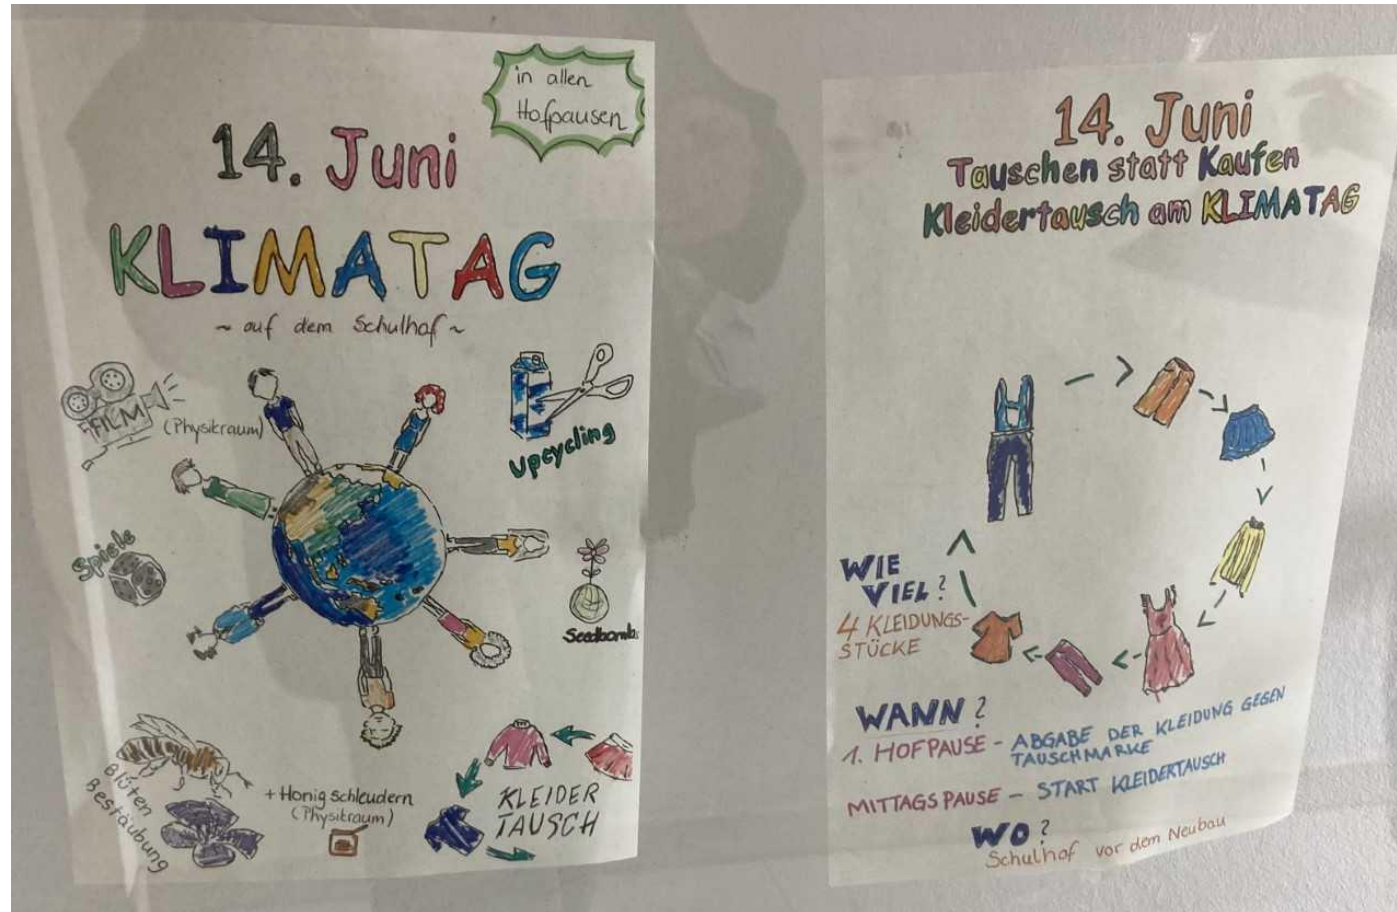 in allen
Hofpausen
14. Juni
KLIMATAG
~ auf dem Schulhof ~
FILM
(Physikraum)
Upcycling
Spiele
Seedbombs
Blüten
Bestäubung
+ Honig schleudern
(Physikraum)
KLEIDER
TAUSCH
14. Juni
Tauschen statt Kaufen
Kleidertausch am KLIMATAG
WIE
VIEL?
4 KLEIDUNGS-
STÜCKE
WANN?
1. HOFPAUSE - ABGABE DER KLEIDUNG GEGEN
TAUSCHMARKE
MITTAGSPAUSE - START KLEIDERTAUSCH
WO?
Schulhof vor dem Neubau